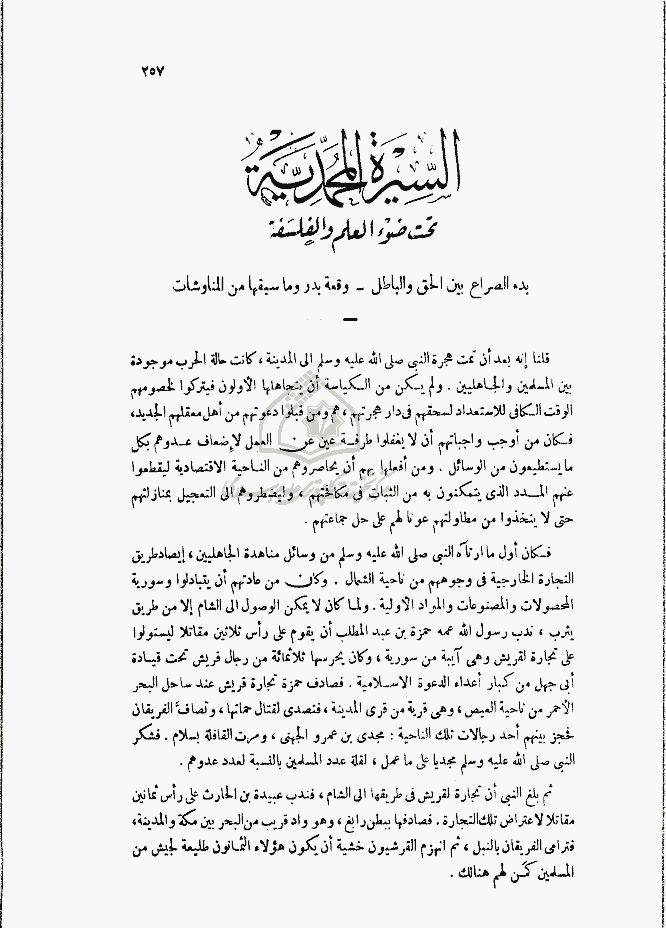 ٢٥٧
السيرة المحمدية
تحت ضوء العلم والفلسفة
بدء الصراع بين الحق والباطل ــ وقعة بدر وما سبقها من المناوشات
قلنا إنه بعد أن تمت هجرة النبى صلى الله عليه وسلم الى المدينة ، كانت حالة الحرب موجودة
بين المسلمين والجاهليين . ولم يكن من الكياسة أن يتجاهلها الأولون فيتركوا لخصومهم
الوقت الكافى للاستعداد لسحقهم فى دار هجرتهم ، هم ومن قبلوا دعوتهم من أهل معقلهم الجديد،
فكان من أوجب واجباتهم أن لا يغفلوا طرفة عين عن العمل لإضعاف عدوهم بكل
ما يستطيعون من الوسائل . ومن أفعلها بهم أن يحاصروهم من الناحية الاقتصادية ليقطعوا
عنهم المدد الذى يتمكنون به من الثبات فى مكافحتهم ، وليضطروهم الى التعجيل بمنازلتهم
حتى لا يتخذوا من مطاولتهم عونا لهم على حل جماعتهم .
فكان أول ما ارتآه النبى صلى الله عليه وسلم من وسائل مناهدة الجاهليين ، إيصاد طريق
التجارة الخارجية فى وجوههم من ناحية الشمال . وكان من عادتهم أن يتبادلوا وسورية
المحصولات والمصنوعات والمواد الاولية . ولما كان لا يمكن الوصول الى الشام إلا من طريق
يثرب ، ندب رسول الله عمه حمزة بن عبد المطلب أن يقوم على رأس ثلاثين مقاتلا ليستولوا
على تجارة لقريش وهى آيبة من سورية ، وكان يحرسها ثلاثمائة من رجال قريش تحت قيادة
أبى جهل من كبار أعداء الدعوة الاسلامية . فصادف حمزة تجارة قريش عند ساحل البحر
الأحمر من ناحية العيص ، وهى قرية من قرى المدينة ، فتصدى لقتال حماتها ، وتصافّ الفريقان
فحجز بينهم أحد رجالات تلك الناحية : مجدى بن عمرو الجهنى ، ومرت القافلة بسلام . فشكر
النبى صلى الله عليه وسلم مجديا على ما عمل ، لقلة عدد المسلمين بالنسبة لعدد عدوهم .
ثم بلغ النبى أن تجارة لقريش فى طريقها الى الشام ، فندب عبيدة بن الحارث على رأس ثمانين
مقاتلا لاعتراض تلك التجارة . فصادفها ببطن رابغ ، وهو واد قريب من البحر بين مكة والمدينة،
فترامى الفريقان بالنبل ، ثم انهزم القرشيون خشية أن يكون هؤلاء الثمانون طليعة لجيش من
المسلمين كمَن لهم هنالك .